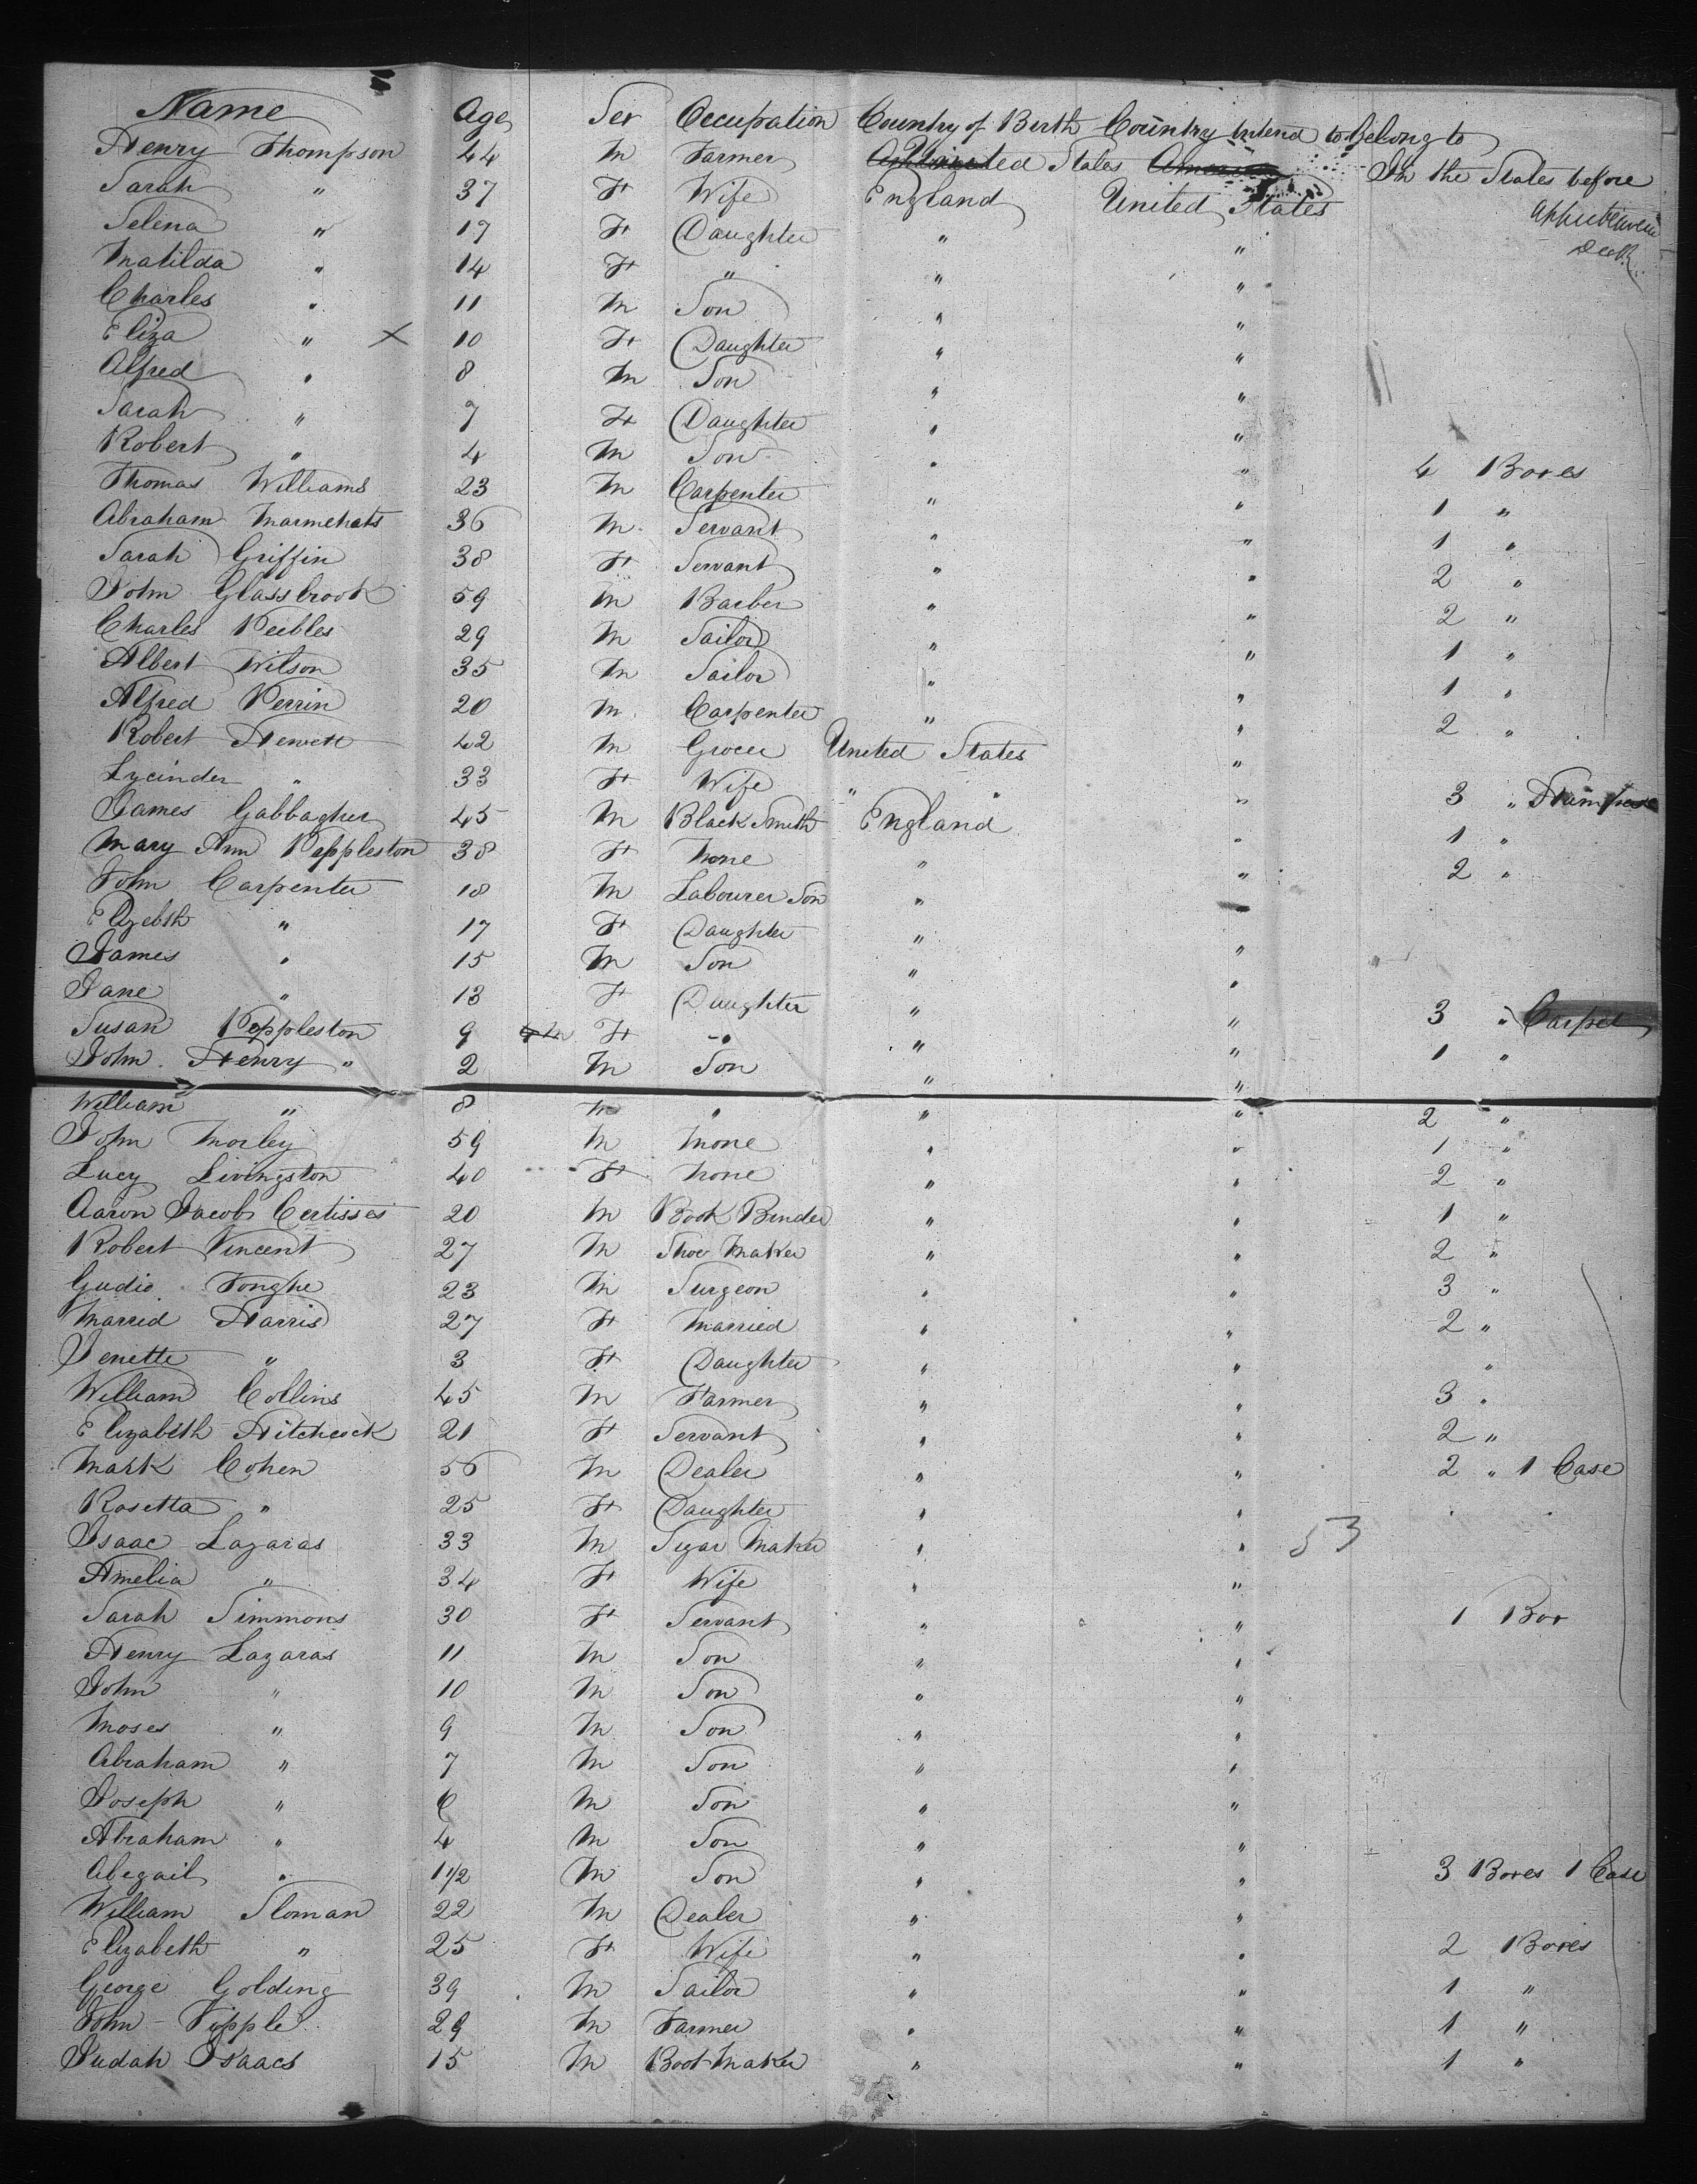 Name Age Sex Occupation Country of Birth Country intend to belong to
Henry Thompson 44 M Farmer United States In the States before
Sarah " 37 F Wife England United States
Selina " 17 F Daughter " "
Matilda " 14 F " " "
Charles " 11 M Son " "
Eliza " X 10 F Daughter " "
Alfred " 8 M Son " "
Sarah " 7 F Daughter " "
Robert " 4 M Son " " 4 Boxes
Thomas Williams 23 M Carpenter " " 1 "
Abraham 36 M Servant " " 1 "
Sarah Griffin 38 F Servant " " 2 "
John Glassbrook 59 M Barber " " 2 "
Charles Peebles 29 M Sailor " " 1 "
Albert Wilson 35 M Sailor " " 1 "
Alfred Perrin 20 M Carpenter " " 2 "
Robert Hewett 42 M Grocer United States "
Lycinder " 33 F Wife " " " 3 "
James Gabbagher 45 M Black Smith England " 1 "
Mary Ann Peppleston 38 F None " " 2 "
John Carpenter 18 M Labourer Son "
Elyzebth " 17 F Daughter " "
James " 15 M Son " "
Jane " 13 F Daughter " " 3 " Carpet
Susan Peppleston 9 F " " " 1 "
John Henry " 2 M Son " "
William " 8 M " " " 2 "
John Morley 59 M None " " 1 "
Lucy Livingston 40 F None " " 2 "
Aaron Jacobs Certisses 20 M Book Binder " " 1 "
Robert Vincent 27 M Shoe Maker " " 2 "
Gudio Tonghe 23 M Surgeon " " 3 "
Marrid Harris 27 F Married " " 2 "
Jenette " 3 F Daughter " " "
William Collins 45 M Farmer " " 3 "
Elizabeth Hitchcock 21 F Servant " " 2 "
Mark Cohen 56 M Dealer " " 2 " 1 Case
Rosetta " 25 F Daughter " "
Isaac Lazaras 33 M Segar Maker " " 53
Amelia " 34 F Wife " "
Sarah Simmons 30 F Servant " " 1 Box
Henry Lazaras 11 M Son " "
John " 10 M Son " "
Moses " 9 M Son " "
Abraham " 7 M Son " "
Joseph " 6 M Son " "
Abraham " 4 M Son " "
Abegail " 1 1/2 M Son " " 3 Boxes 1 Case
William Sloman 22 M Dealer " "
Elizabeth " 25 F Wife " " 2 Boxes
George Golding 39 M Sailor " " 1 "
John Tipple 29 M Farmer " " 1 "
Judah Isaacs 15 M Boot Maker " " 1 "